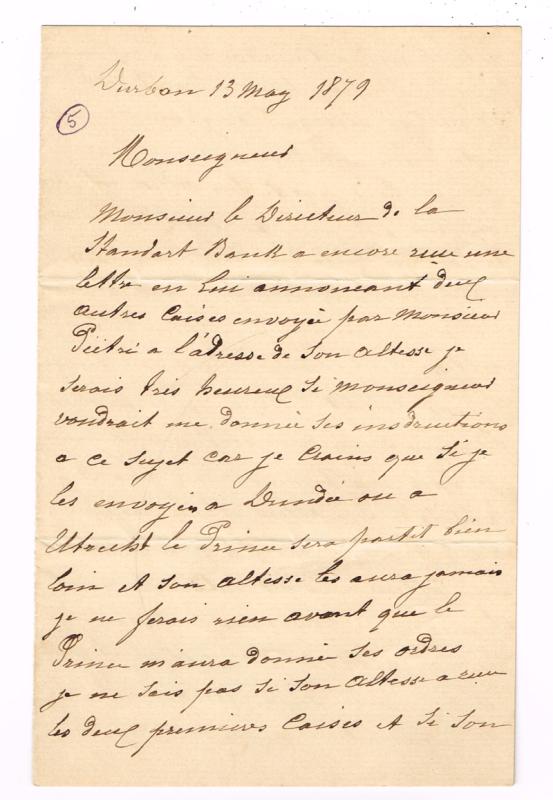 Durban 13 May 1879
5
Monseigneur
Monsieur le Directeur de la
Standart Bank a encore reçue une
lettre en lui annonceant deux
autres Caises envoyée par Monsieur
Piëtri a l'adresse de Son Altesse je
serais très heureux Si Monseigneur
voudrait me donnée Ses instructions
a ce Sujet car je Crains que Si je
les envoyer a Dundée ou a
Utrecht le Prince Sera partit bien
loin et Son Altesse les aura jamais
je ne ferais rien avant que le
Prince m'aura donnée Ses ordres
je ne Sais pas Si Son Altesse a reçu
les deux premières Caises et Si Son